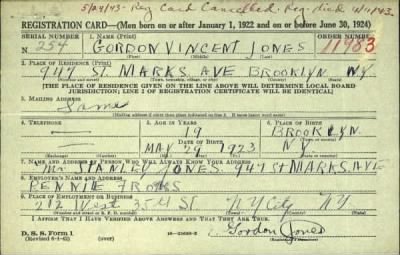 5/24/43 - Reg Card Cancelled. Reg. died 4/11/43.
REGISTRATION CARD—(Men born on or after January 1, 1922 and on or before June 30, 1924)
SERIAL NUMBER 1. NAME (Print) ORDER NUMBER
N 254 GORDON VINCENT JONES 11983
(First) (Middle) (Last)
2. PLACE OF RESIDENCE (Print)
947 ST. MARKS AVE BROOKLYN N.Y.
(Number and street) (Town, township, village, or city) (County) (State)
[THE PLACE OF RESIDENCE GIVEN ON THE LINE ABOVE WILL DETERMINE LOCAL BOARD
JURISDICTION; LINE 2 OF REGISTRATION CERTIFICATE WILL BE IDENTICAL]
3. MAILING ADDRESS
Same
[Mailing address if other than place indicated on line 2. If same insert word same]
4. TELEPHONE 5. AGE IN YEARS 6. PLACE OF BIRTH
— 19 BROOKLYN
DATE OF BIRTH
— MAY 29 1923 N.Y.
(Exchange) (Number) (Mo.) (Day) (Yr.) (State or country)
7. NAME AND ADDRESS OF PERSON WHO WILL ALWAYS KNOW YOUR ADDRESS
Mr STANLEY JONES 947 ST MARKS AVE
8. EMPLOYER'S NAME AND ADDRESS
PENNIE FROKS
9. PLACE OF EMPLOYMENT OR BUSINESS
212 West 35th St. N Y City N Y
(Number and street or R. F. D. number) (Town) (County) (State)
I AFFIRM THAT I HAVE VERIFIED ABOVE ANSWERS AND THAT THEY ARE TRUE.
D. S. S. Form 1
(Revised 6-1-42) (over) Gordon Jones
(Registrant's signature)